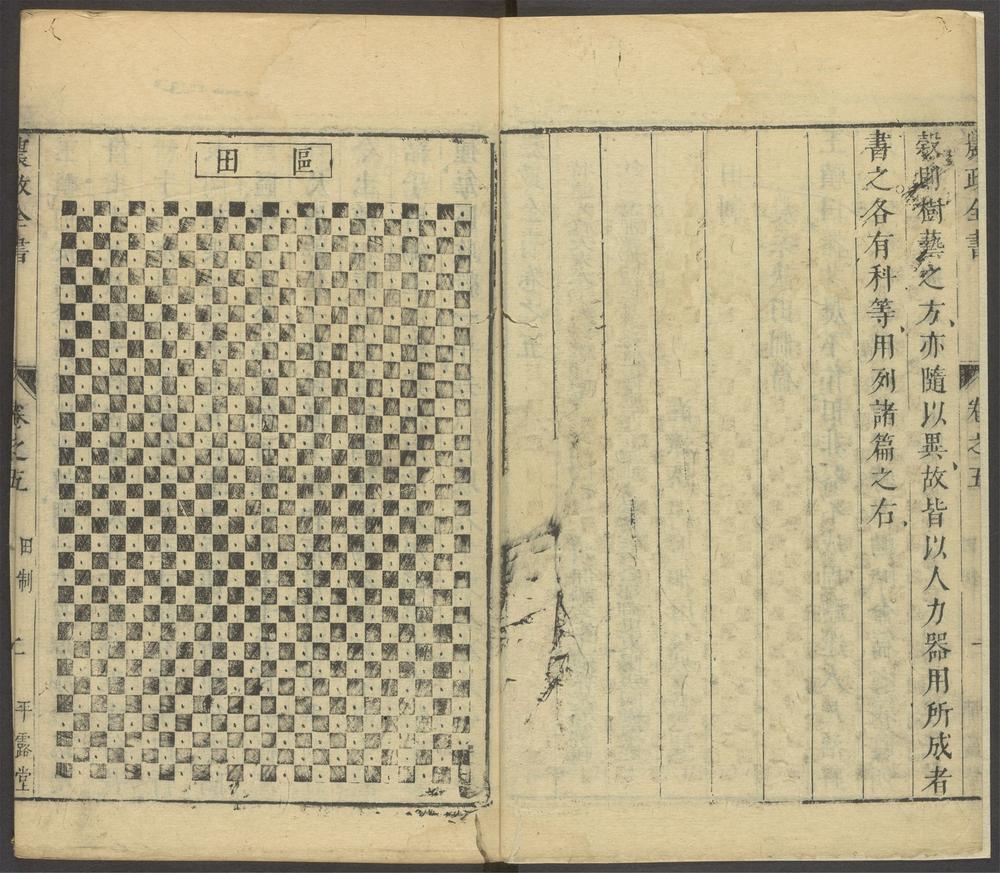 農政全書
卷之五
糓則樹藝之方、亦隨以異、故皆以人力器用所成者
書之各有科等、用列諸篇之右、
區田
農政全書
卷之五
田制
平露堂